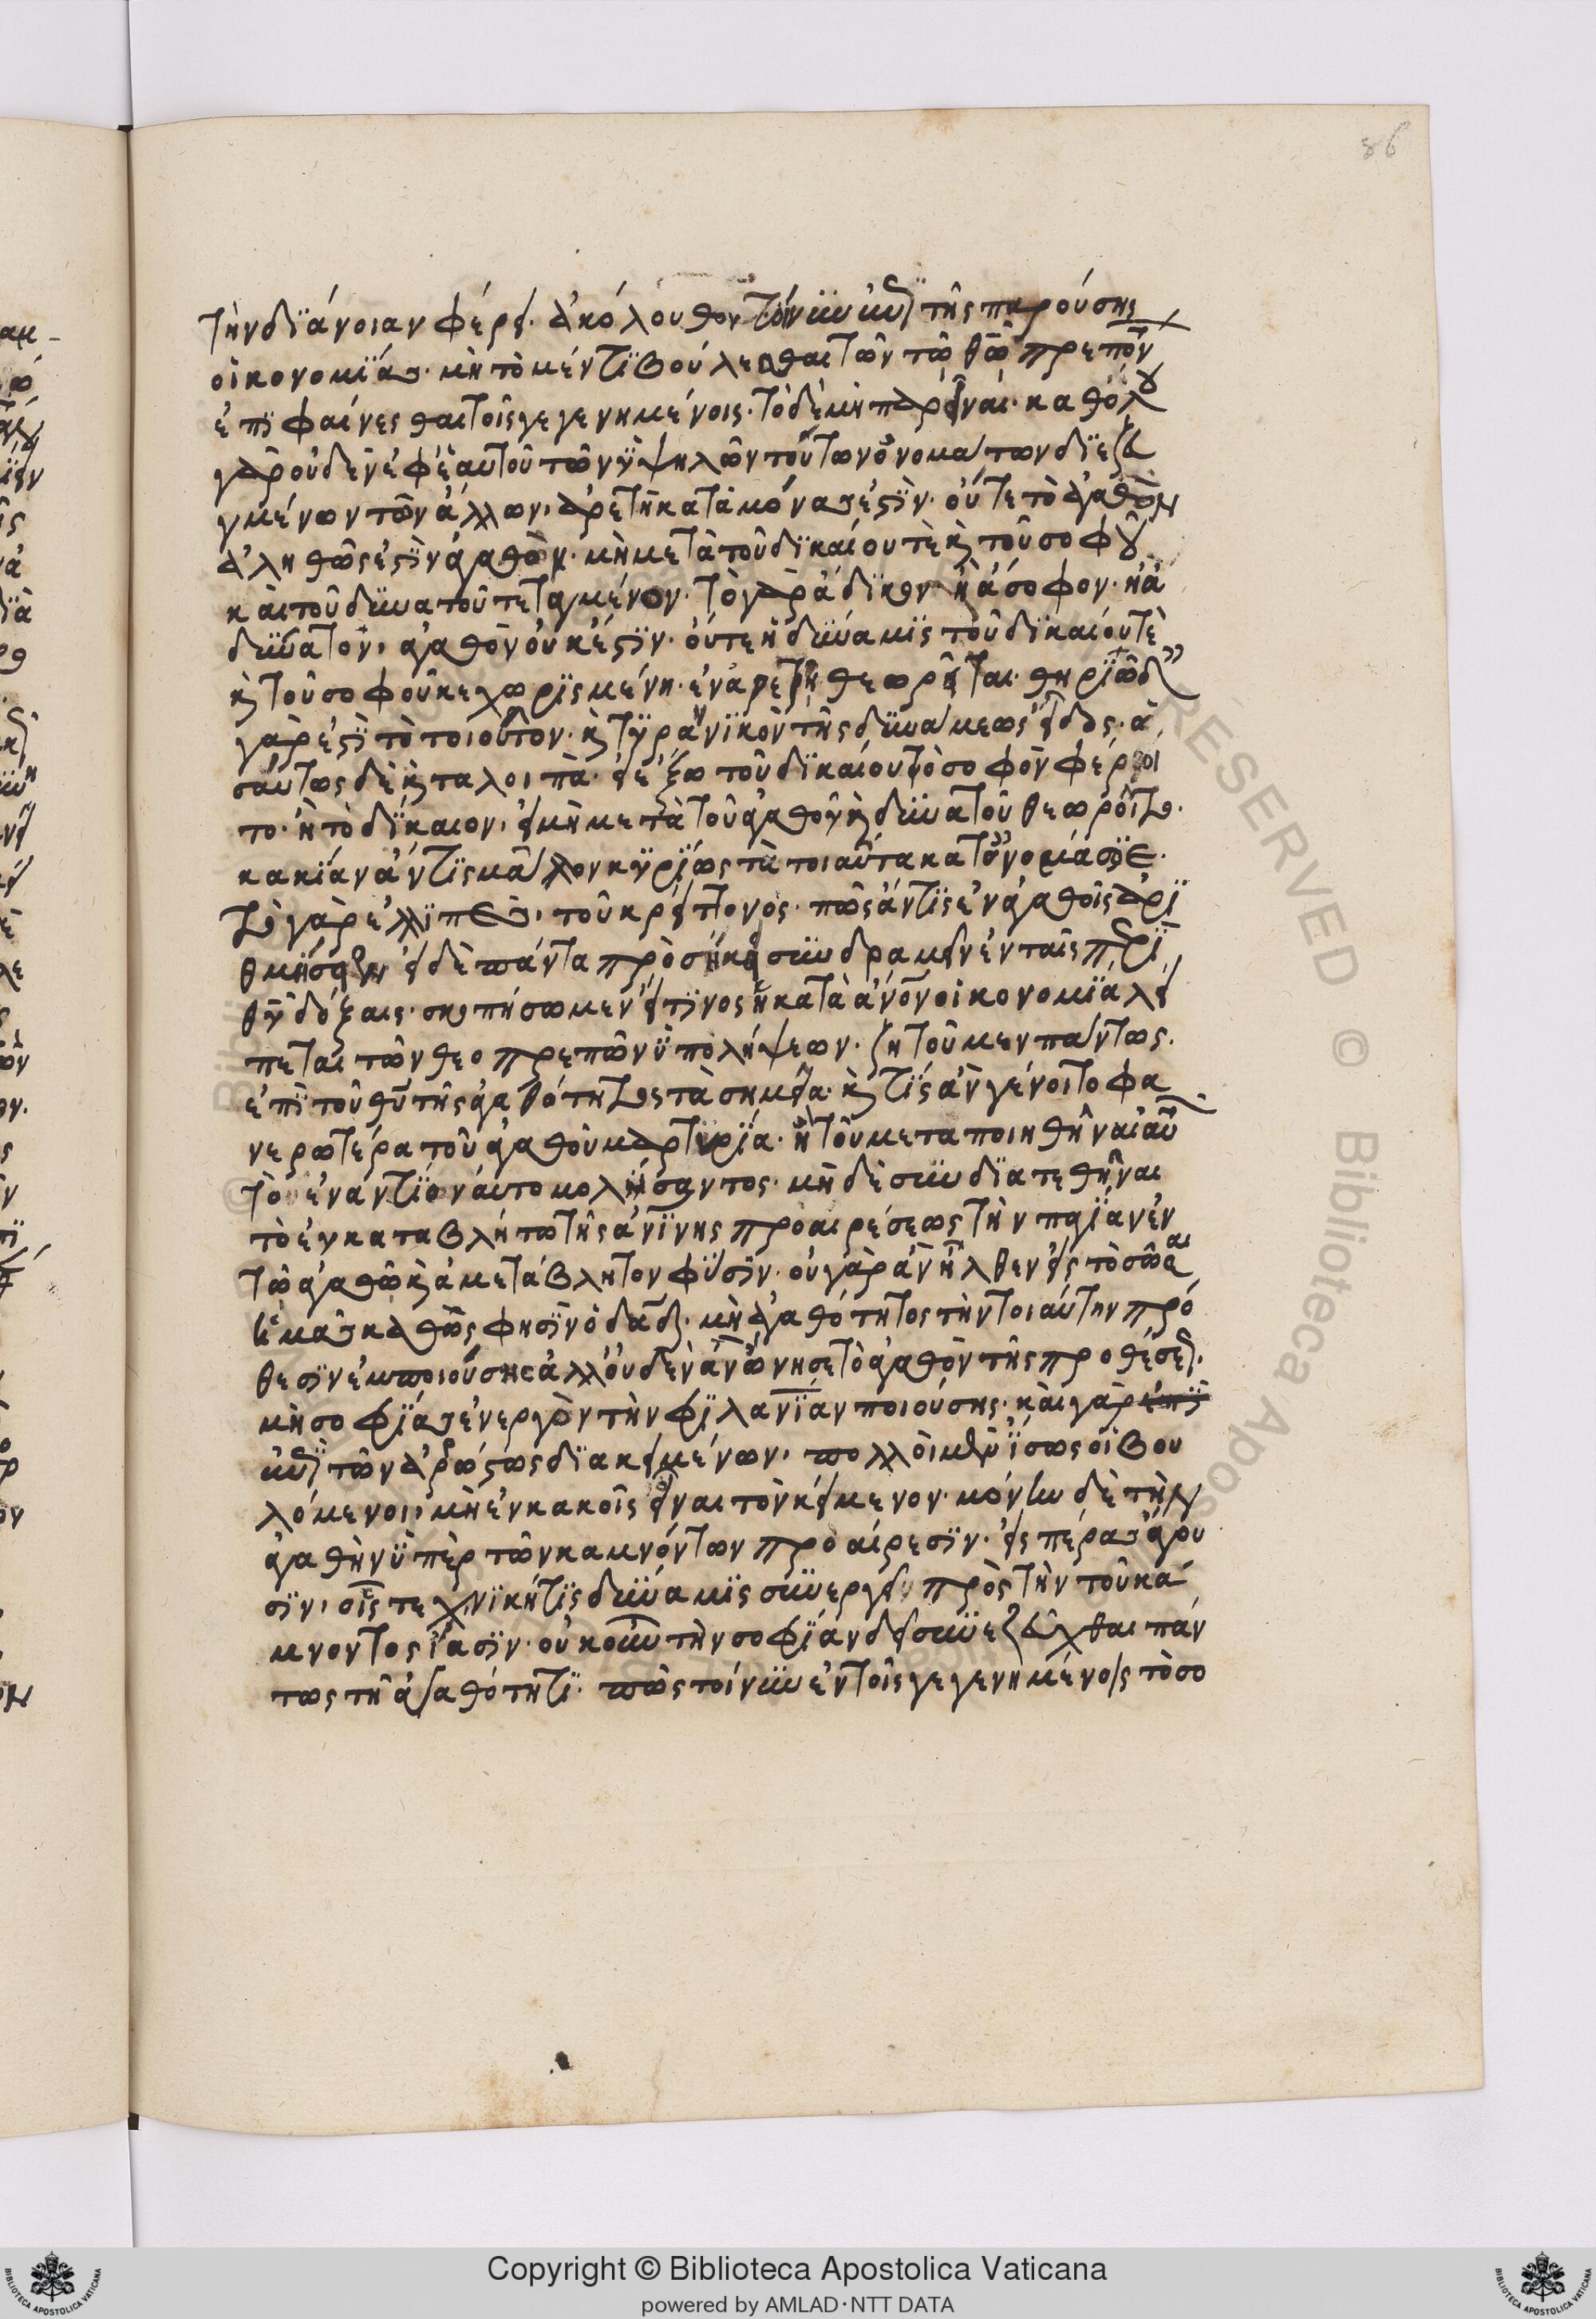 τὴν διάνοιαν φέρει· ἀκόλουθον τοίνυν ἐπὶ τῆς παρούσης
οἰκονομίας· μὴ τὸ μέν τι βούλεσθαι τῶν τῷ θῶ πρεπόντ
ἐπιφαίνεσθαι τοῖς γεγενημένοις· τὸ δὲ μὴ παρεῖναι· καθόλου
γὰρ οὐδὲν ἐφ' ἑαυτοῦ τῶν ὑψηλῶν τούτων ὀνομάτων διεζευ
γμένων τῶν ἄλλων, ἀρετὴ κατὰ μόνας ἐστὶν· οὔτε τὸ ἀγαθὸν
ἀληθῶς ἐστὶν ἀγαθὸν· μὴ μετὰ τοῦ δικαίου τὲ καὶ τοῦ σοφοῦ
καὶ τοῦ δυνατοῦ τεταγμένον· τὸ γὰρ ἄδικον ἢ ἄσοφον· ἢ ἀ
δύνατον, ἀγαθὸν οὐκ ἔστιν· οὔτε ἡ δύναμις τοῦ δικαίου τὲ
καὶ τοῦ σοφοῦ κεχωρισμένη· ἐν ἀρετῇ θεωρεῖται· θηριῶδες
γάρ ἐστι τὸ τοιοῦτον· καὶ τυραννικὸν τῆς δυνάμεως εἶδος· ὡ
σαύτως δὲ καὶ τὰ λοιπὰ· εἰ ἔξω τοῦ δικαίου τὸ σοφὸν φέροι
το· ἢ τὸ δίκαιον, εἰ μὴ μετὰ τοῦ ἀγαθοῦ καὶ δυνατοῦ θεωροῖτο·
κακίαν ἄν τις μᾶλλον κυρίως τὰ τοιαῦτα κατονομάσειε·
τὸ γὰρ ἐλλιπὲς, τοῦ κρείττονος· πῶς ἄν τις ἐν ἀγαθοῖς ἀρι
θμήσειεν εἰ δὲ πάντα προσήκει συνδραμεῖν ἐν ταῖς περὶ
θῦ δόξαις· σκοπήσωμεν εἴ τινος ἡ κατὰ ἄνον οἰκονομία λεί
πεται τῶν θεοπρεπῶν ὑπολήψεων· ζητοῦμεν πάντως.
ἐπὶ τοῦ θῦ τῆς ἀγαθότητος τὰ σημεῖα· καὶ τίς ἂν γένοιτο φα
νερωτέρα τοῦ ἀγαθοῦ μαρτυρία· ἢ τοῦ μεταποιηθῆναι αὐτ
τὸν ἐναντίον αὐτομολήσαντος· μὴ δὲ συνδιατεθῆναι
τὸ ἐγκαταβλήτω τῆς ἀνίνης προαιρέσεως τὴν παγίαν ἐν
τῶ ἀγαθῶ καὶ ἀμετάβλητον φύσιν· οὐ γὰρ ἂν ἦλθεν εἰς τὸ σῶσαι
ἡμᾶς καθώς φησιν ὁ δαδ· μὴ ἀγαθότητος τὴν τοιαύτην πρό
θεσιν ἐμποιούσης ἀλλ' οὐδὲν ἂν ὤνησε τὸ ἀγαθὸν τῆς προθέσεως.
μὴ σοφίας ἐνεργὸν τὴν φιλανίαν ποιούσης· καὶ γὰρ ἐπὶ
ἐπὶ τῶν ἀρρώστως διακειμένων, πολλοὶ μὲν ἴσως οἱ βου
λόμενοι, μὴ ἐν κακοῖς εἶναι τὸν κείμενον· μόνω δὲ τὴν
ἀγαθὴν ὑπὲρ τῶν καμνόντων προαίρεσιν· εἰς πέρας ἄγου
σιν, οἷς τεχνική τις δύναμις συνεργεῖ πρὸς τὴν τοῦ κά
μνοντος ἴασιν· οὐκοῦν τὴν σοφίαν δεῖ συνεζεῦχθαι πάν
τως τῆ ἀγαθότητι· πῶς τοίνυν ἐν τοῖς γεγενημένοις τὸ σο
86
Copyright © Biblioteca Apostolica Vaticana
powered by AMLAD·NTT DATA